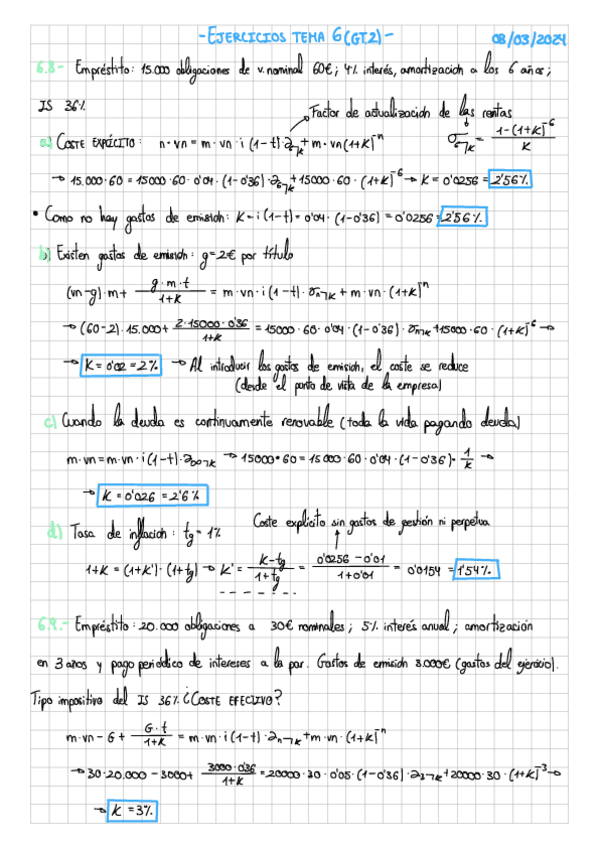 -EJERCICIOS TEMA 6 (GT.2)-
08/03/2024
6.8- Empréstito: 15.000 obligaciones de v.nominal 60€; 4% interés, amortización a los 6 años;
IS 36%
Factor de actualización de las rentas
a) COSTE EXPLÍCITO: n·vn = m·vn·i (1-t)·a n¬K + m·vn(1+K)^-n
σ 6¬K = 1-(1+K)^-6 / K
→ 15.000·60 = 15000·60·0'04·(1-0'36)·a 6¬K + 15000·60·(1+K)^-6 → K = 0'0256 = 2'56%
• Como no hay gastos de emisión: K = i (1-t) = 0'04·(1-0'36) = 0'0256 = 2'56%
b) Existen gastos de emisión: g=2€ por título
(vn-g)·m + g·m·t / 1+K = m·vn·i (1-t)·σ n¬K + m·vn·(1+K)^-n
→ (60-2)·15.000 + 2·15000·0'36 / 1+K = 15000·60·0'04·(1-0'36)·σ n¬K + 15000·60·(1+K)^-6 →
→ K = 0'02 = 2% → Al introducir los gastos de emisión, el coste se reduce
(desde el punto de vista de la empresa)
c) Cuando la deuda es continuamente renovable (toda la vida pagando deuda)
m·vn = m·vn·i (1-t)·a ∞¬K → 15000·60 = 15000·60·0'04·(1-0'36)·1/K →
→ K = 0'026 = 2'6%
d) Tasa de inflación: tg = 1%
Coste explícito sin gastos de gestión ni perpetua
1+K = (1+K')·(1+tg) → K' = K-tg / 1+tg = 0'0256-0'01 / 1+0'01 = 0'0154 = 1'54%
6.9.- Empréstito: 20.000 obligaciones a 30€ nominales; 5% interés anual; amortización
en 3 años y pago periódico de intereses a la par. Gastos de emisión 3.000€ (gastos del ejercicio).
Tipo impositivo del IS 36% ¿COSTE EFECTIVO?
m·vn - G + G·t / 1+K = m·vn·i (1-t)·a n¬K + m·vn·(1+K)^-n
→ 30·20.000 - 3000 + 3000·0'36 / 1+K = 20000·30·0'05·(1-0'36)·a 3¬K + 20000·30·(1+K)^-3 →
→ K = 3%